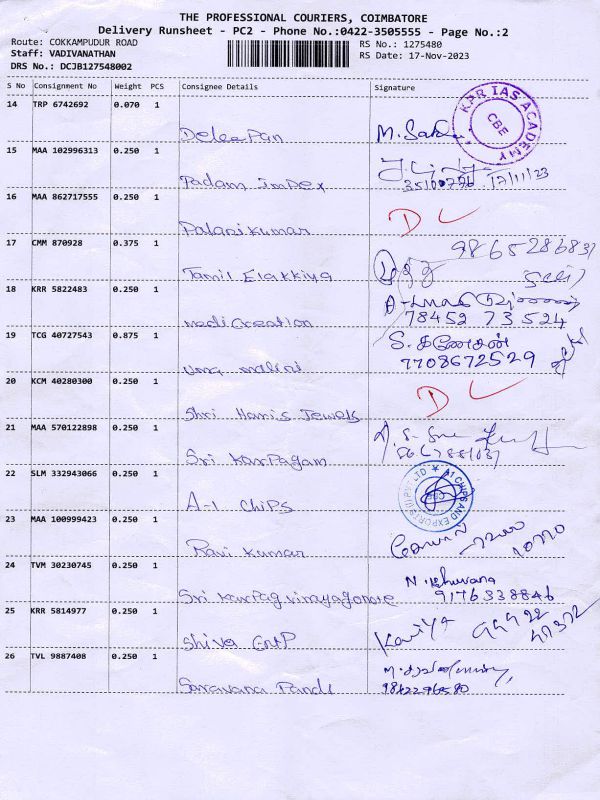 THE PROFESSIONAL COURIERS, COIMBATORE
Delivery Runsheet - PC2 - Phone No.:0422-3505555 - Page No.:2
Route: COKKAMPUDUR ROAD
RS No.: 1275480
Staff: VADIVANATHAN
RS Date: 17-Nov-2023
DRS No.: DCJB127548002
S No Consignment No Weight PCS Consignee Details Signature
14 TRP 6742692 0.070 1
Deleepan M. Sakthi
KAR IAS ACADEMY
CBE
15 MAA 102996313 0.250 1
Padam Impex 35100756 17/11/23
16 MAA 862717555 0.250 1
Palanikumar D L
17 CMM 870928 0.375 1
Tamil Elakkiya 9865286837
18 KRR 5822483 0.250 1
medi Creation 78452 73524
19 TCG 40727543 0.875 1
Uma malini S. கணேசன் 7708672529
20 KCM 40280300 0.250 1
Shri Haris Jewels D L
21 MAA 570122898 0.250 1
Sri Karpagam
22 SLM 332943066 0.250 1
A-1 Chips
A1 CHIPS AND EXPORTS (I) PVT LTD
23 MAA 100999423 0.250 1
Ravi Kumar
24 TVM 30230745 0.250 1
Sri Karpagvinayagonore N. Bhuvana 9176338846
25 KRR 5814977 0.250 1
Shiva Entp Kaviya 99922 47372
26 TVL 9887408 0.250 1
Saravana Pandi 9842296580